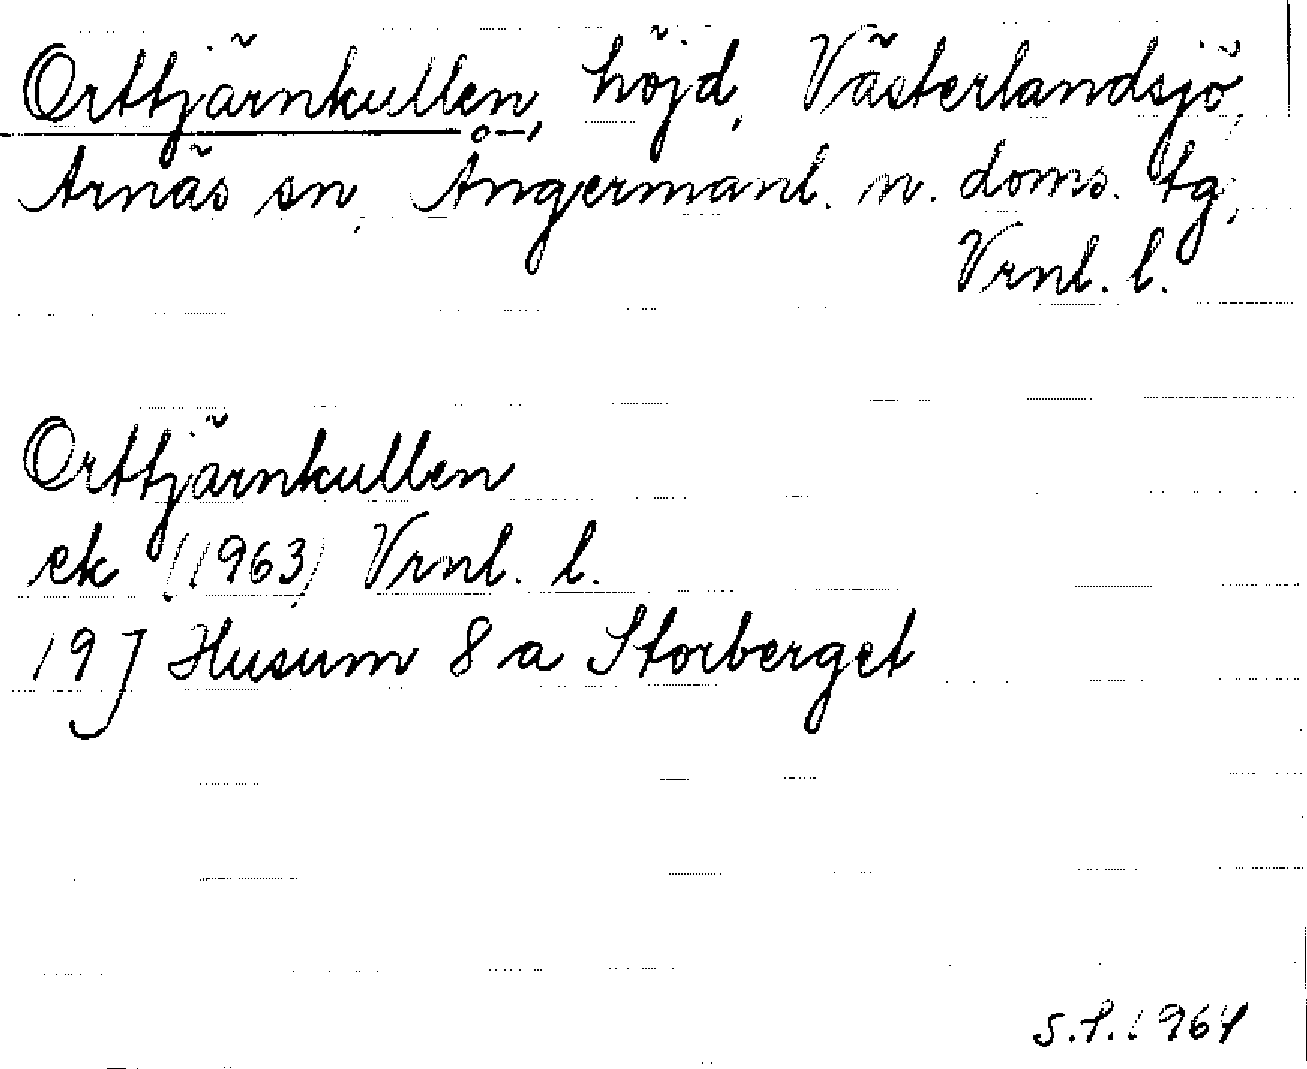 Orttjärnkullen, höjd, Västerlandsjö,
Arnäs sn, Ångermanl. n. doms. tg,
Vrnl. l.
Orttjärnkullen
ek (1963) Vrnl. l.
19 J Husum 8 a Storberget
S.P. 1964